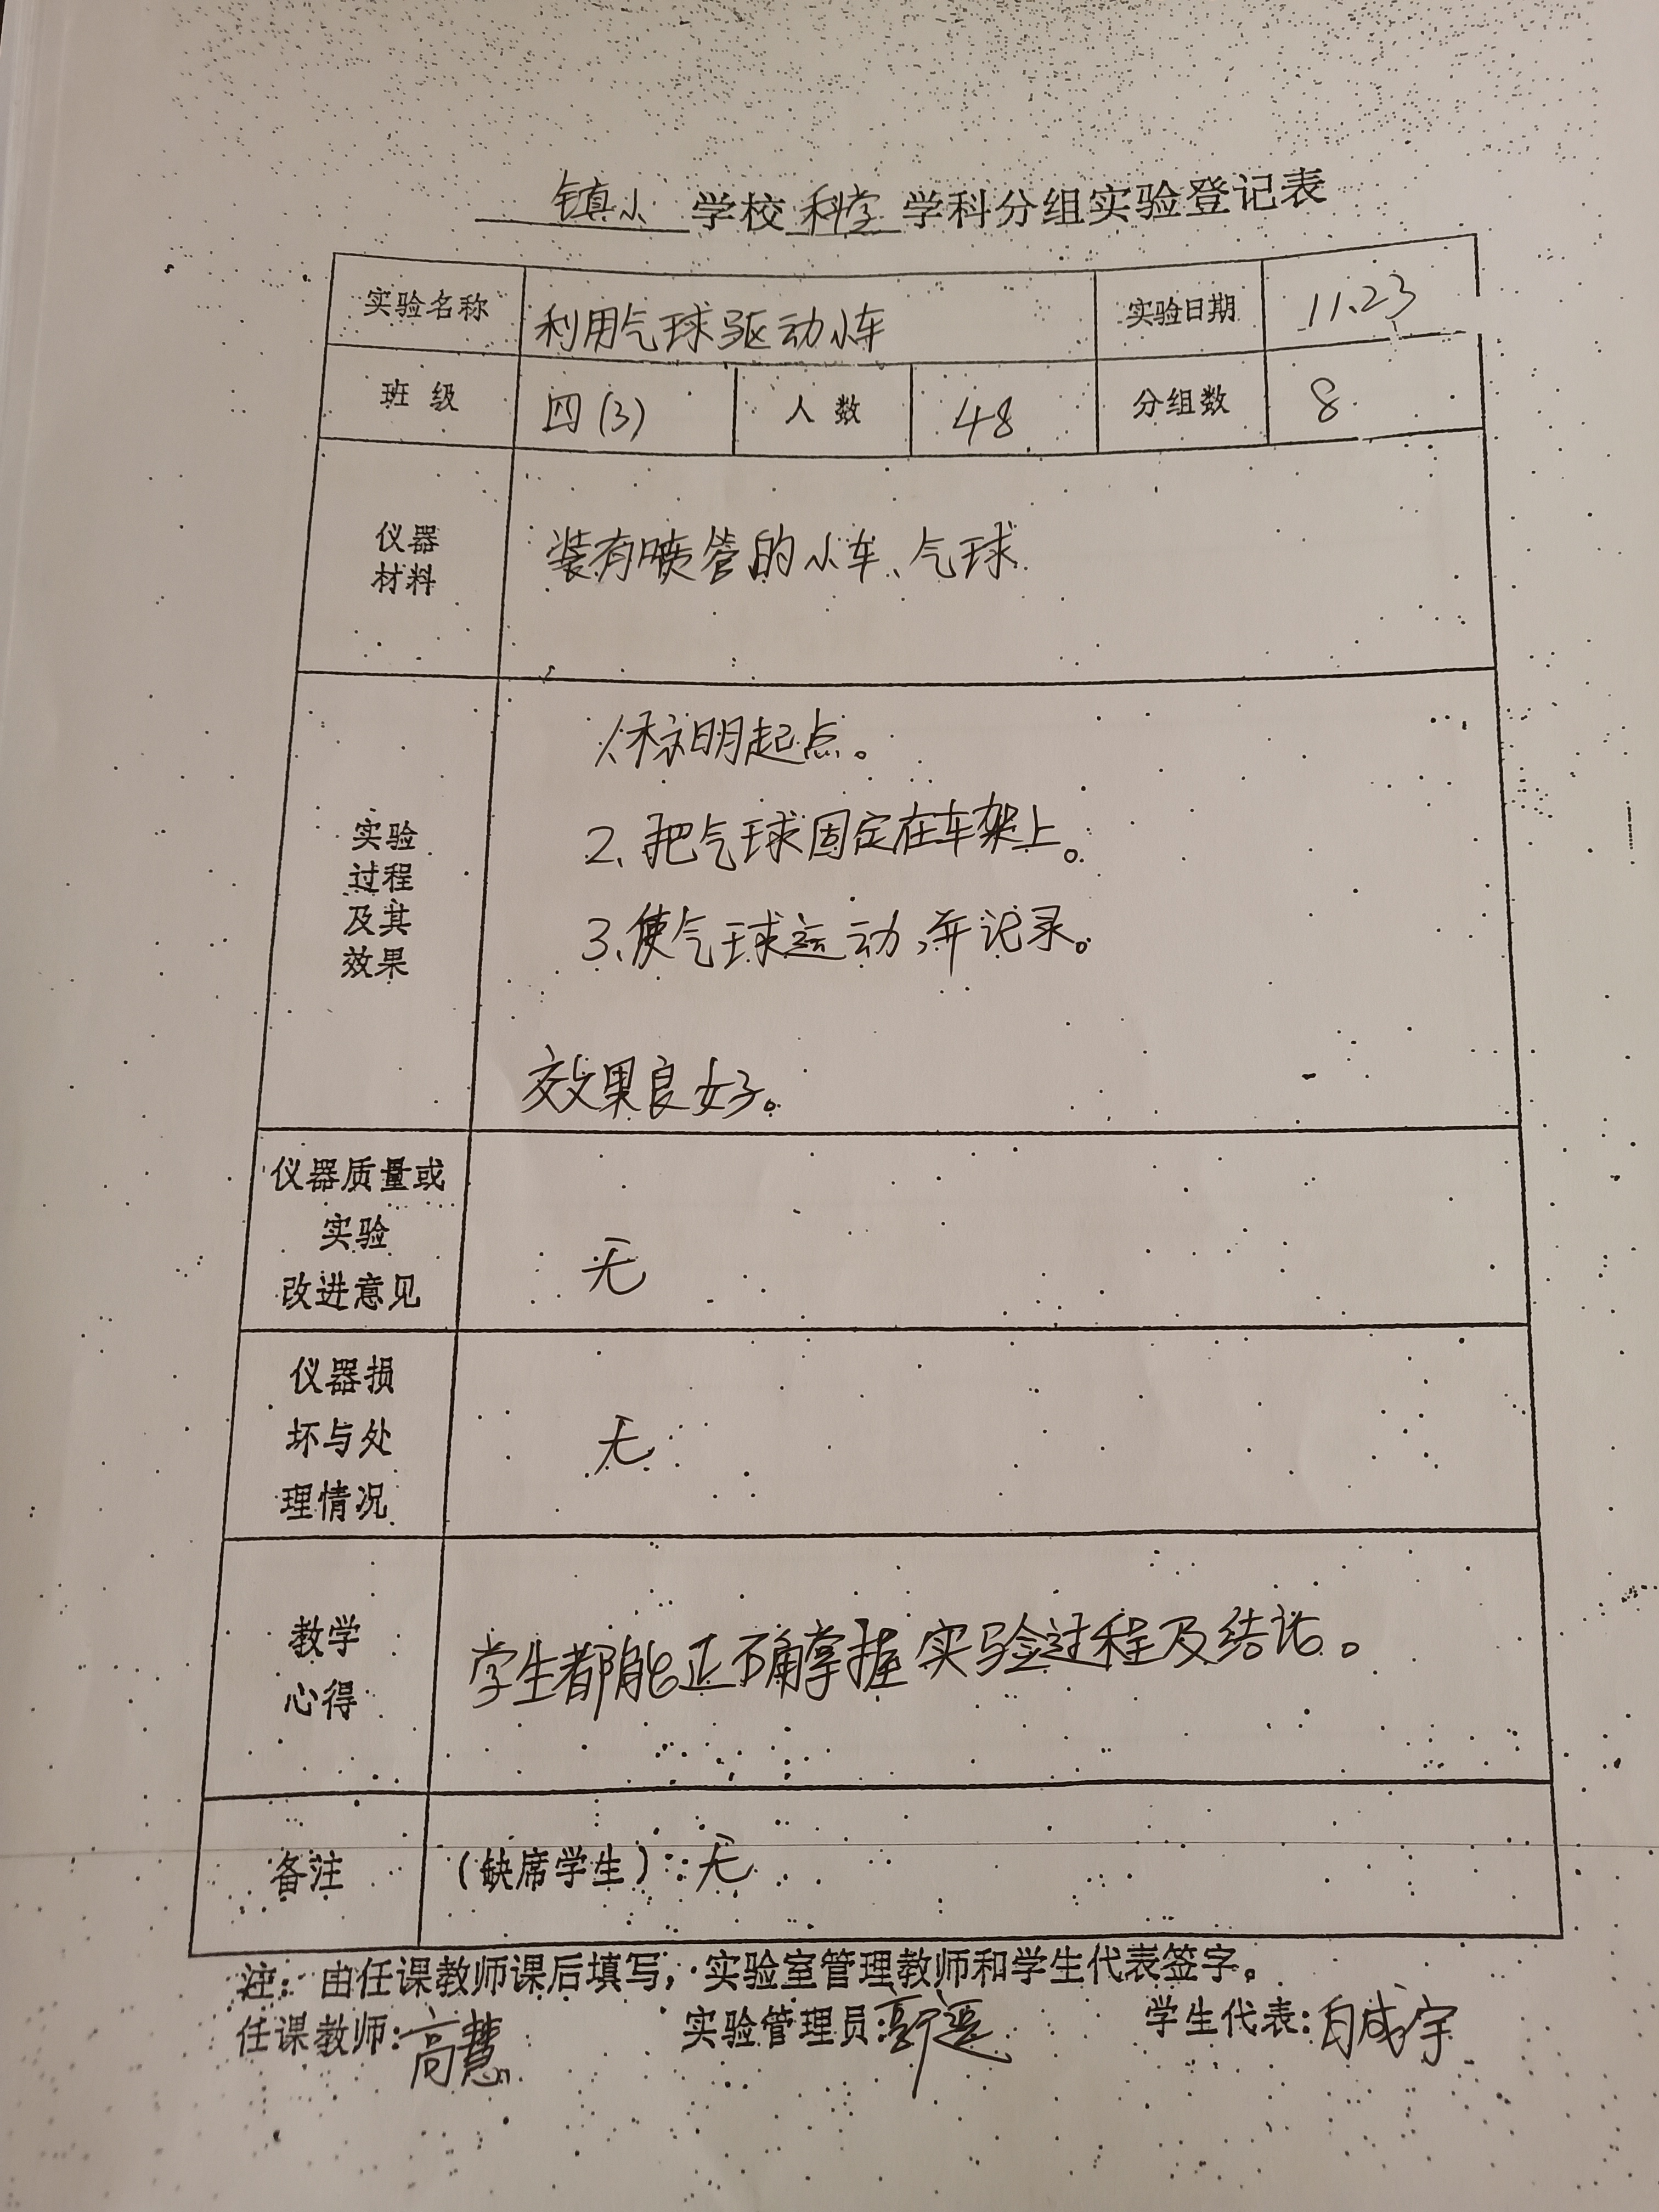 镇小 学校 科学 学科分组实验登记表
实验名称 利用气球驱动小车 实验日期 11.23
班 级 四(3) 人 数 48 分组数 8
仪器
材料
装有喷管的小车、气球.
实验
过程
及其
效果
1、标明起点。
2、把气球固定在车架上。
3、使气球运动,并记录。
效果良好。
仪器质量或
实验
改进意见
无
仪器损
坏与处
理情况
无
教学
心得
学生都能正确掌握实验过程及结论。
备注
(缺席学生):无
注:由任课教师课后填写,实验室管理教师和学生代表签字。
任课教师:高慧 实验管理员 学生代表: